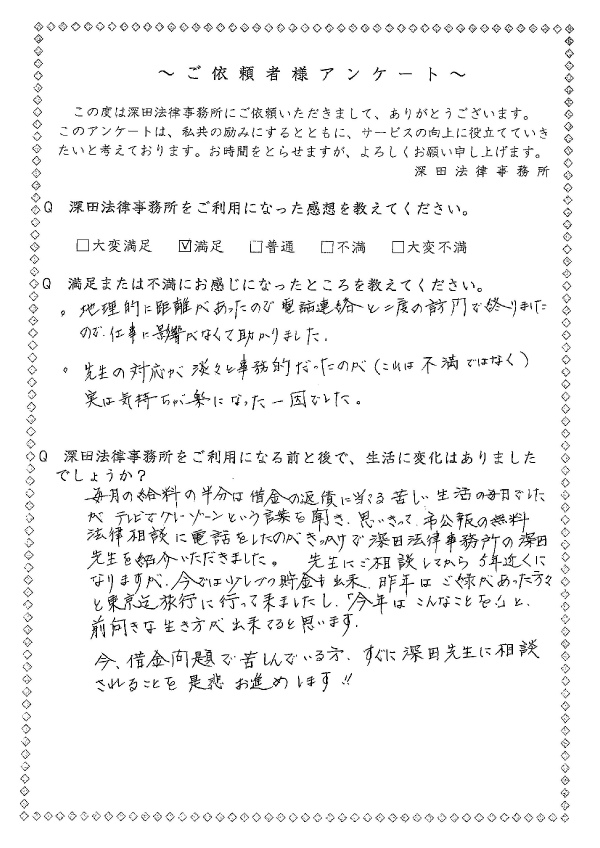 ～ご依頼者様アンケート～
この度は深田法律事務所にご依頼いただきまして、ありがとうございます。
このアンケートは、私共の励みにするとともに、サービスの向上に役立てていき
たいと考えております。お時間をとらせますが、よろしくお願い申し上げます。
深田法律事務所
Q 深田法律事務所をご利用になった感想を教えてください。
□大変満足 ☑満足 □普通 □不満 □大変不満
Q 満足または不満にお感じになったところを教えてください。
。地理的に距離があったので電話連絡と二度の訪問で終りました
ので、仕事に影響がなくて助かりました。
。先生の対応が淡々と事務的だったのが（これは不満ではなく）
実は気持ちが楽になった一因でした。
Q 深田法律事務所をご利用になる前と後で、生活に変化はありました
でしょうか？
毎月の給料の半分は借金の返債に当てる苦しい生活の毎日でした
が テレビでグレーゾーンという言葉を聞き、思いきって、市公報の無料
法律相談に電話をしたのがきっかけで深田法律事務所の深田
先生を紹介いただきました。 先生にご相談してから5年近くに
なりますが、今では少しづつ貯金も出来、昨年はご縁があった方々
と東京迄旅行に行って来ましたし、「今年はこんなことを」と、
前向きな生き方が出来てると思います。
今、借金問題で苦しんでいる方、すぐに深田先生に相談
されることを是悲お進めします!!